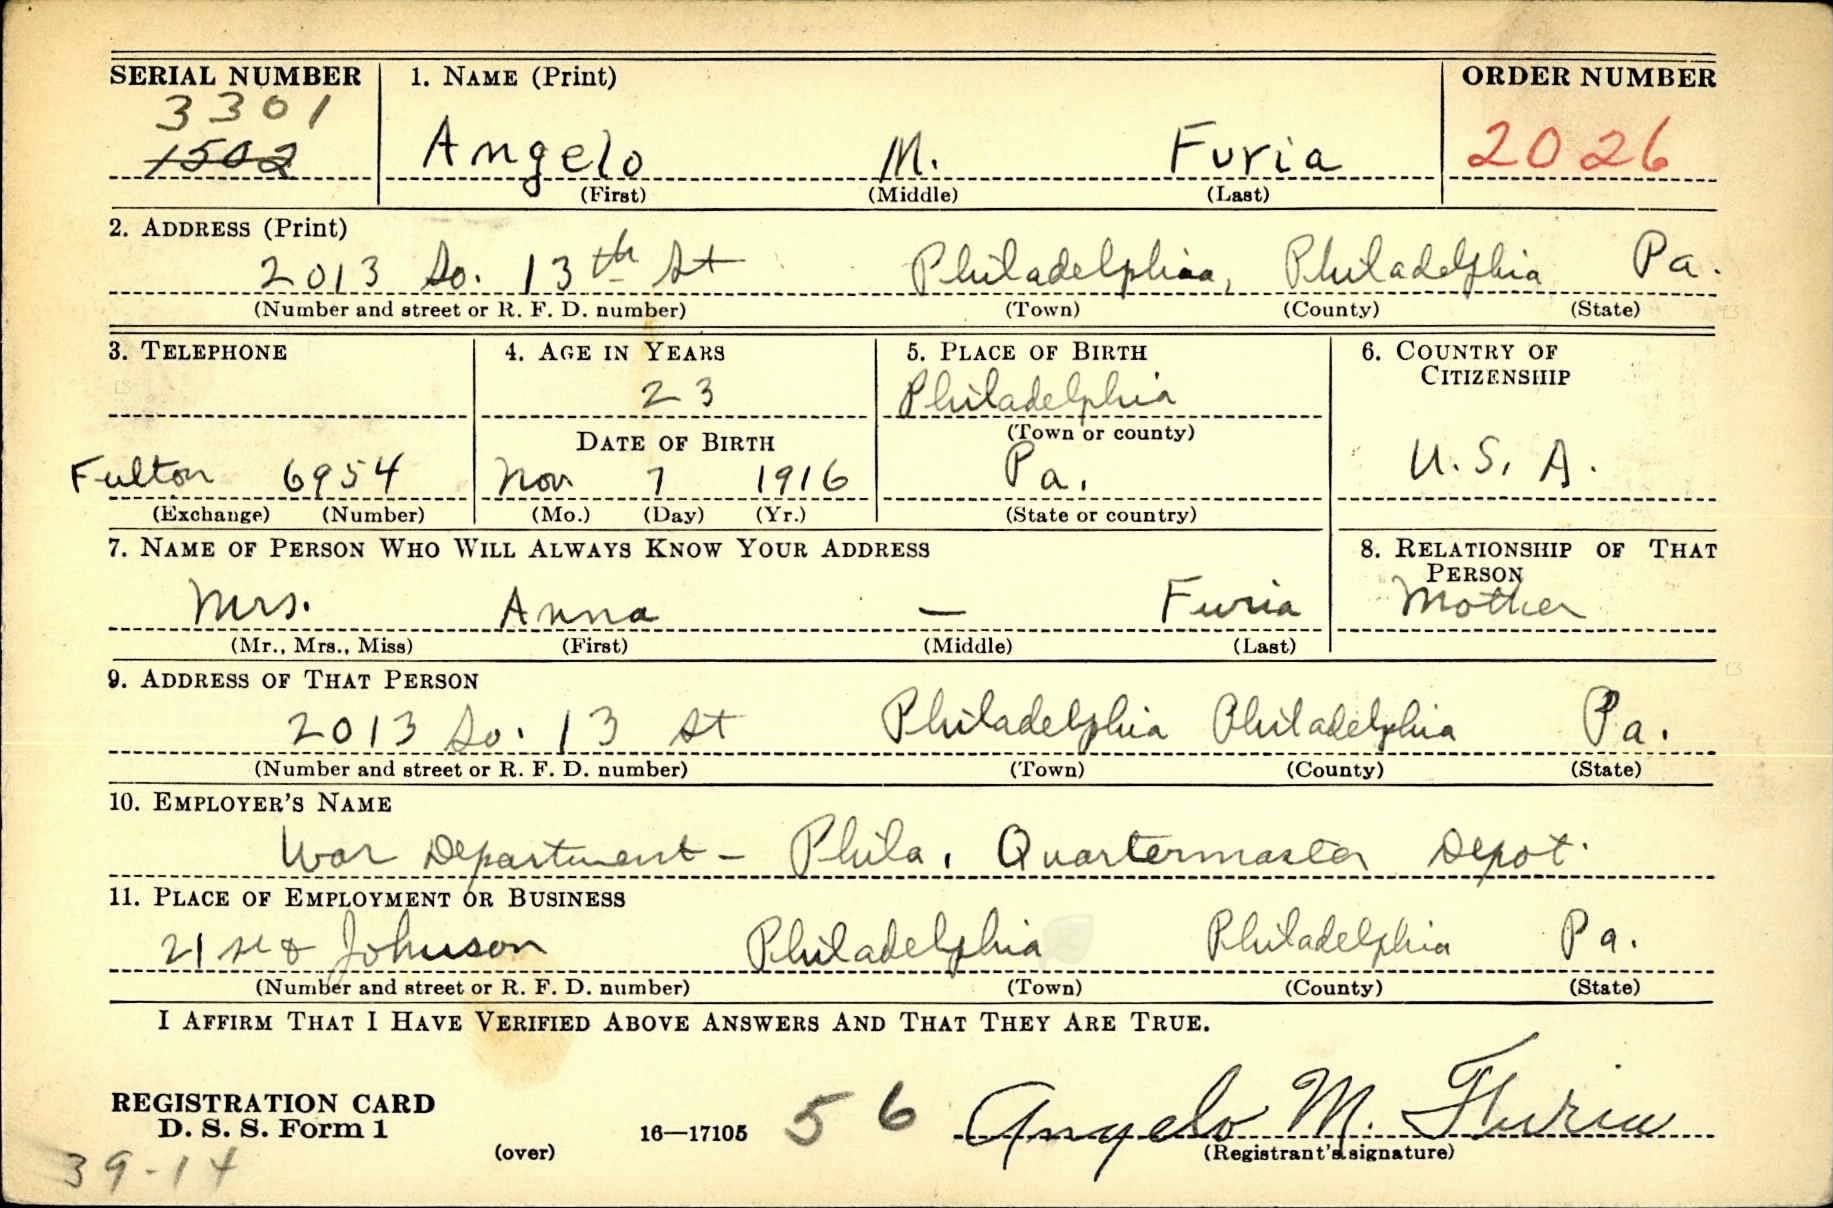 SERIAL NUMBER 1. NAME (Print) ORDER NUMBER
3301
1502 Angelo M. Furia 2026
(First) (Middle) (Last)
2. ADDRESS (Print)
2013 So. 13th St Philadelphia, Philadelphia Pa.
(Number and street or R. F. D. number) (Town) (County) (State)
3. TELEPHONE 4. AGE IN YEARS 5. PLACE OF BIRTH 6. COUNTRY OF
CITIZENSHIP
23 Philadelphia
(Town or county)
DATE OF BIRTH
Fulton 6954 Nov 7 1916 Pa. U.S.A.
(Exchange) (Number) (Mo.) (Day) (Yr.) (State or country)
7. NAME OF PERSON WHO WILL ALWAYS KNOW YOUR ADDRESS 8. RELATIONSHIP OF THAT
PERSON
Mrs. Anna — Furia Mother
(Mr., Mrs., Miss) (First) (Middle) (Last)
9. ADDRESS OF THAT PERSON
2013 So. 13 St Philadelphia Philadelphia Pa.
(Number and street or R. F. D. number) (Town) (County) (State)
10. EMPLOYER'S NAME
War Department - Phila. Quartermaster Depot.
11. PLACE OF EMPLOYMENT OR BUSINESS
21 st & Johnson Philadelphia Philadelphia Pa.
(Number and street or R. F. D. number) (Town) (County) (State)
I AFFIRM THAT I HAVE VERIFIED ABOVE ANSWERS AND THAT THEY ARE TRUE.
REGISTRATION CARD
D. S. S. Form 1 16—17105 56 Angelo M. Furia
(over) (Registrant's signature)
39-14